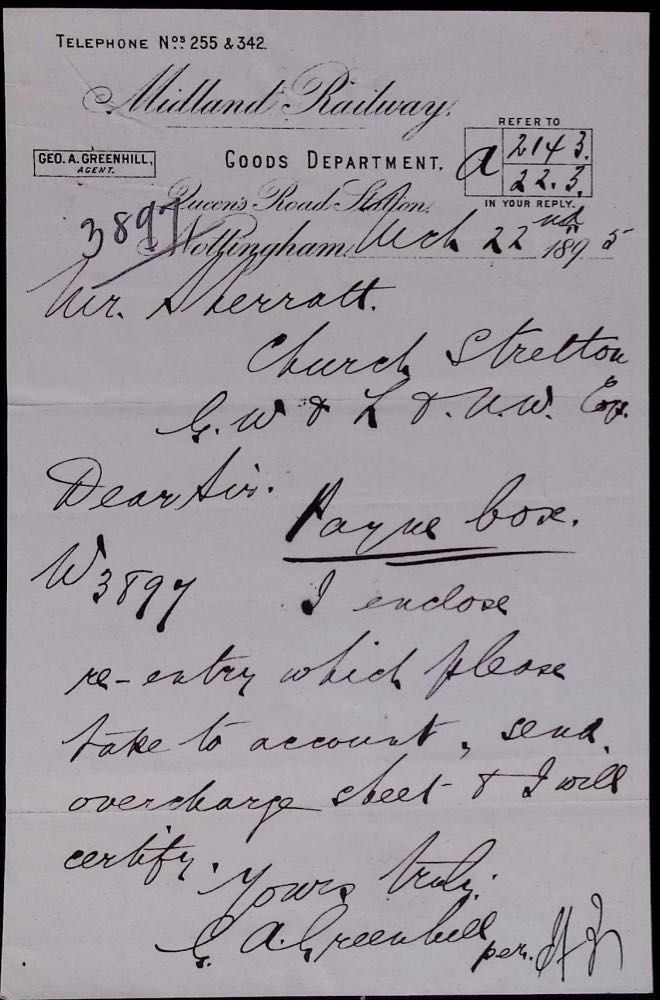 TELEPHONE Nos. 255 & 342.
Midland Railway.
REFER TO
GEO. A. GREENHILL,
AGENT.
GOODS DEPARTMENT,
a 2143.
22.3.
IN YOUR REPLY.
Queen's Road Station,
3897
Nottingham, Mch 22nd 1895
Mr. Sherratt.
Church Stretton
G. W & L & N. W. Coy.
Dear Sir.
Payne box.
W3897 I enclose
re-entry which please
take to account, send
overcharge sheet & I will
certify.
Yours truly.
G. A. Greenhill
per.